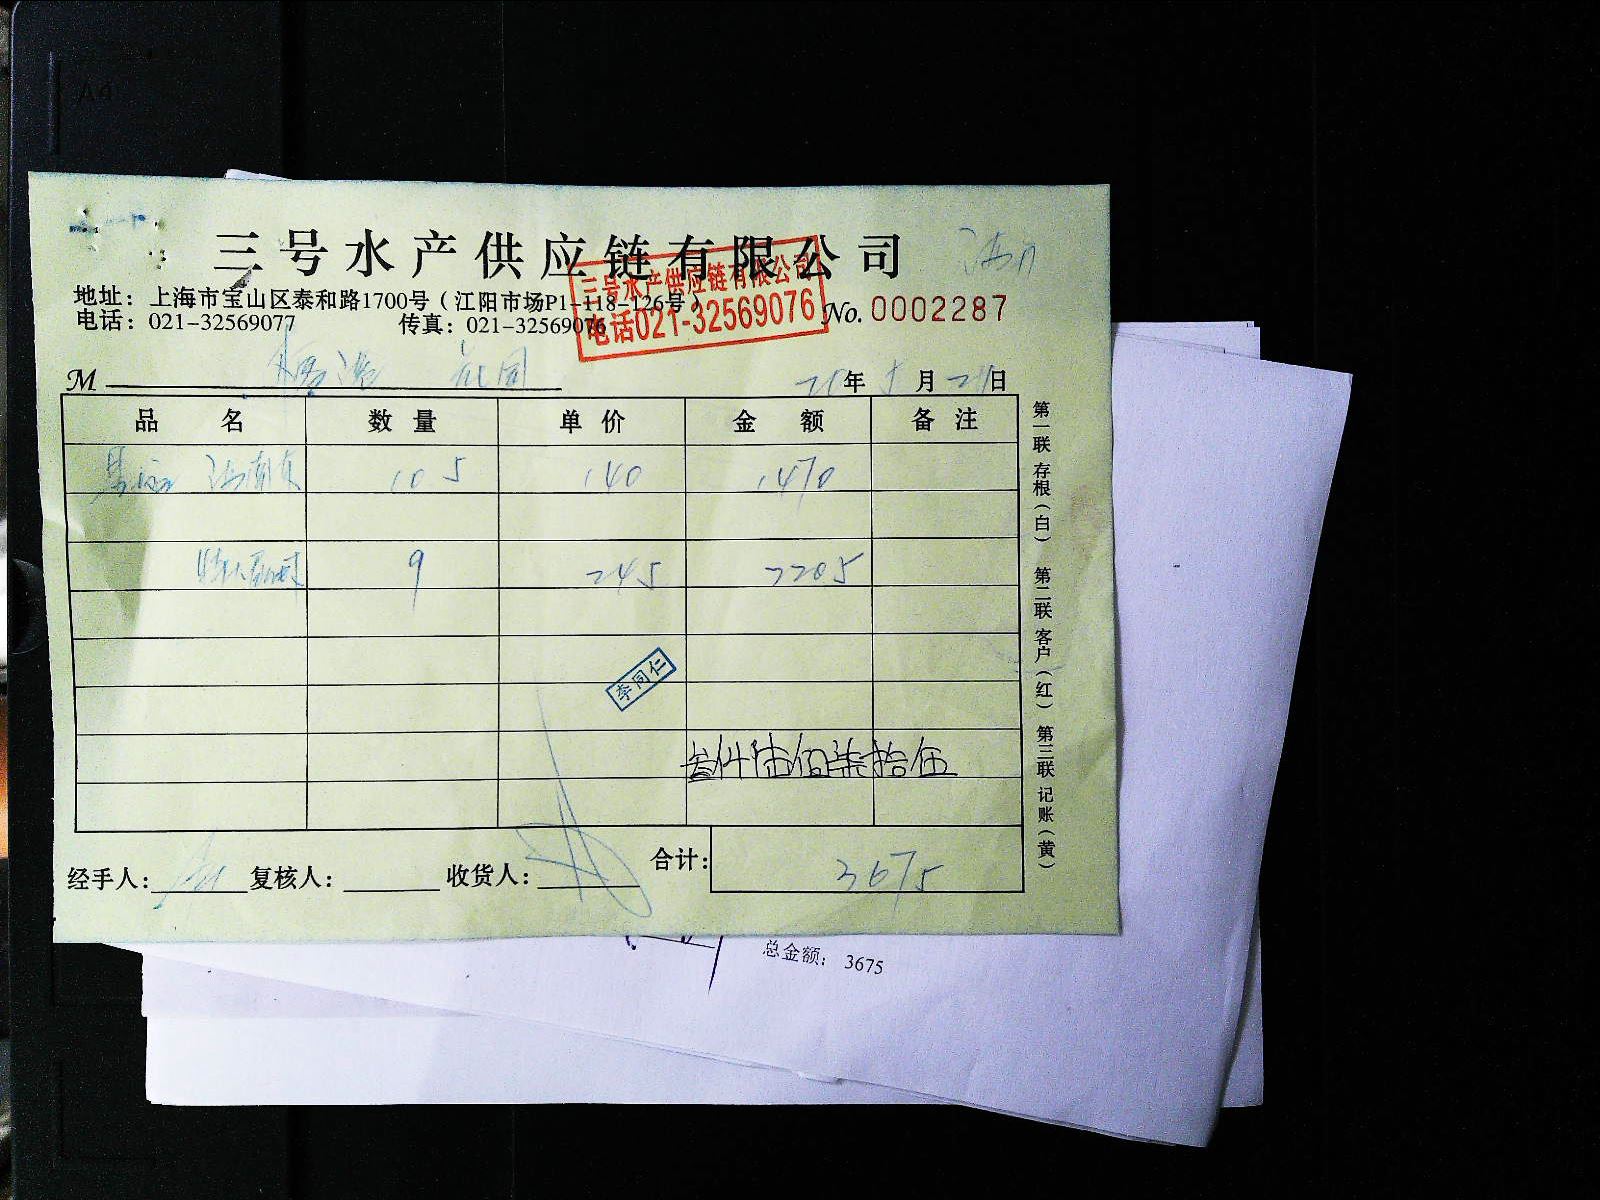 A4
三号水产供应链有限公司
地址：上海市宝山区泰和路1700号（江阳市场P1-118-126号）
电话：021-32569077 传真：021-32569076
三号水产供应链有限公司
电话021-32569076
No. 0002287
M
年 月 日
品名 数量 单价 金额 备注
105 140 1470
9 245 2205
李同仁
叁仟陆佰柒拾伍
经手人： 复核人： 收货人： 合计： 3675
第一联 存根（白） 第二联 客户（红） 第三联 记账（黄）
总金额： 3675